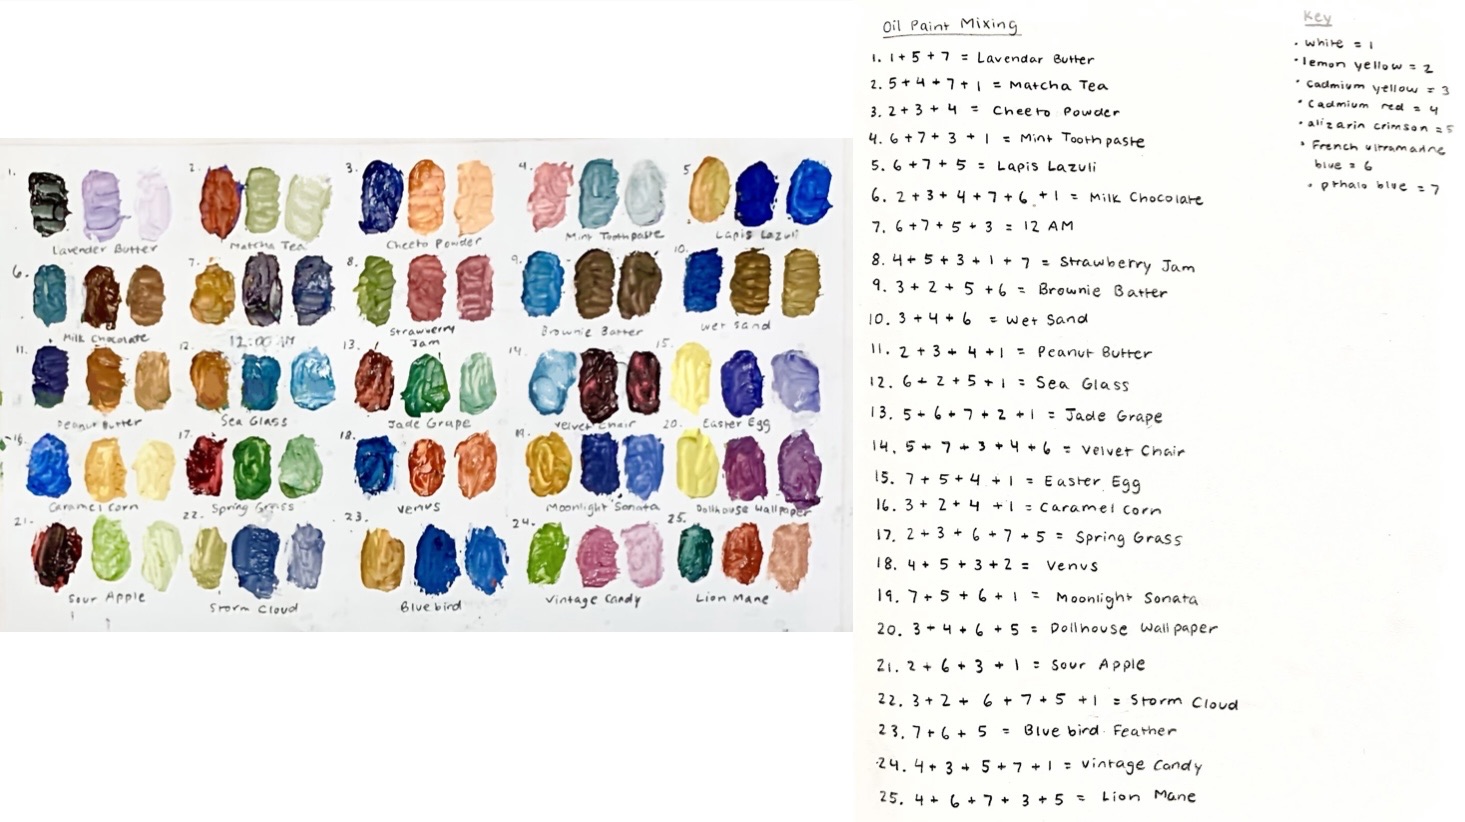 1.
Lavender Butter
2.
Matcha Tea
3.
Cheeto Powder
4.
Mint Toothpaste
5.
Lapis Lazuli
6.
Milk Chocolate
7.
12:00 AM
8.
Strawberry
Jam
9.
Brownie Batter
10.
Wet Sand
11.
Peanut Butter
12.
Sea Glass
13.
Jade Grape
14.
Velvet Chair
15.
Easter Egg
16.
Caramel Corn
17.
Spring Grass
18.
Venus
19.
Moonlight Sonata
20.
Dollhouse Wallpaper
21.
Sour Apple
22.
Storm Cloud
23.
Bluebird
24.
Vintage Candy
25.
Lion Mane
Oil Paint Mixing
1. 1 + 5 + 7 = Lavendar Butter
2. 5 + 4 + 7 + 1 = Matcha Tea
3. 2 + 3 + 4 = Cheeto Powder
4. 6 + 7 + 3 + 1 = Mint Toothpaste
5. 6 + 7 + 5 = Lapis Lazuli
6. 2 + 3 + 4 + 7 + 6 + 1 = Milk Chocolate
7. 6 + 7 + 5 + 3 = 12 AM
8. 4 + 5 + 3 + 1 + 7 = Strawberry Jam
9. 3 + 2 + 5 + 6 = Brownie Batter
10. 3 + 4 + 6 = Wet Sand
11. 2 + 3 + 4 + 1 = Peanut Butter
12. 6 + 2 + 5 + 1 = Sea Glass
13. 5 + 6 + 7 + 2 + 1 = Jade Grape
14. 5 + 7 + 3 + 4 + 6 = Velvet Chair
15. 7 + 5 + 4 + 1 = Easter Egg
16. 3 + 2 + 4 + 1 = Caramel Corn
17. 2 + 3 + 6 + 7 + 5 = Spring Grass
18. 4 + 5 + 3 + 2 = Venus
19. 7 + 5 + 6 + 1 = Moonlight Sonata
20. 3 + 4 + 6 + 5 = Dollhouse Wallpaper
21. 2 + 6 + 3 + 1 = Sour Apple
22. 3 + 2 + 6 + 7 + 5 + 1 = Storm Cloud
23. 7 + 6 + 5 = Bluebird Feather
24. 4 + 3 + 5 + 7 + 1 = Vintage Candy
25. 4 + 6 + 7 + 3 + 5 = Lion Mane
Key
• white = 1
• lemon yellow = 2
• Cadmium yellow = 3
• Cadmium red = 4
• alizarin crimson = 5
• French ultramarine
blue = 6
• pthalo blue = 7